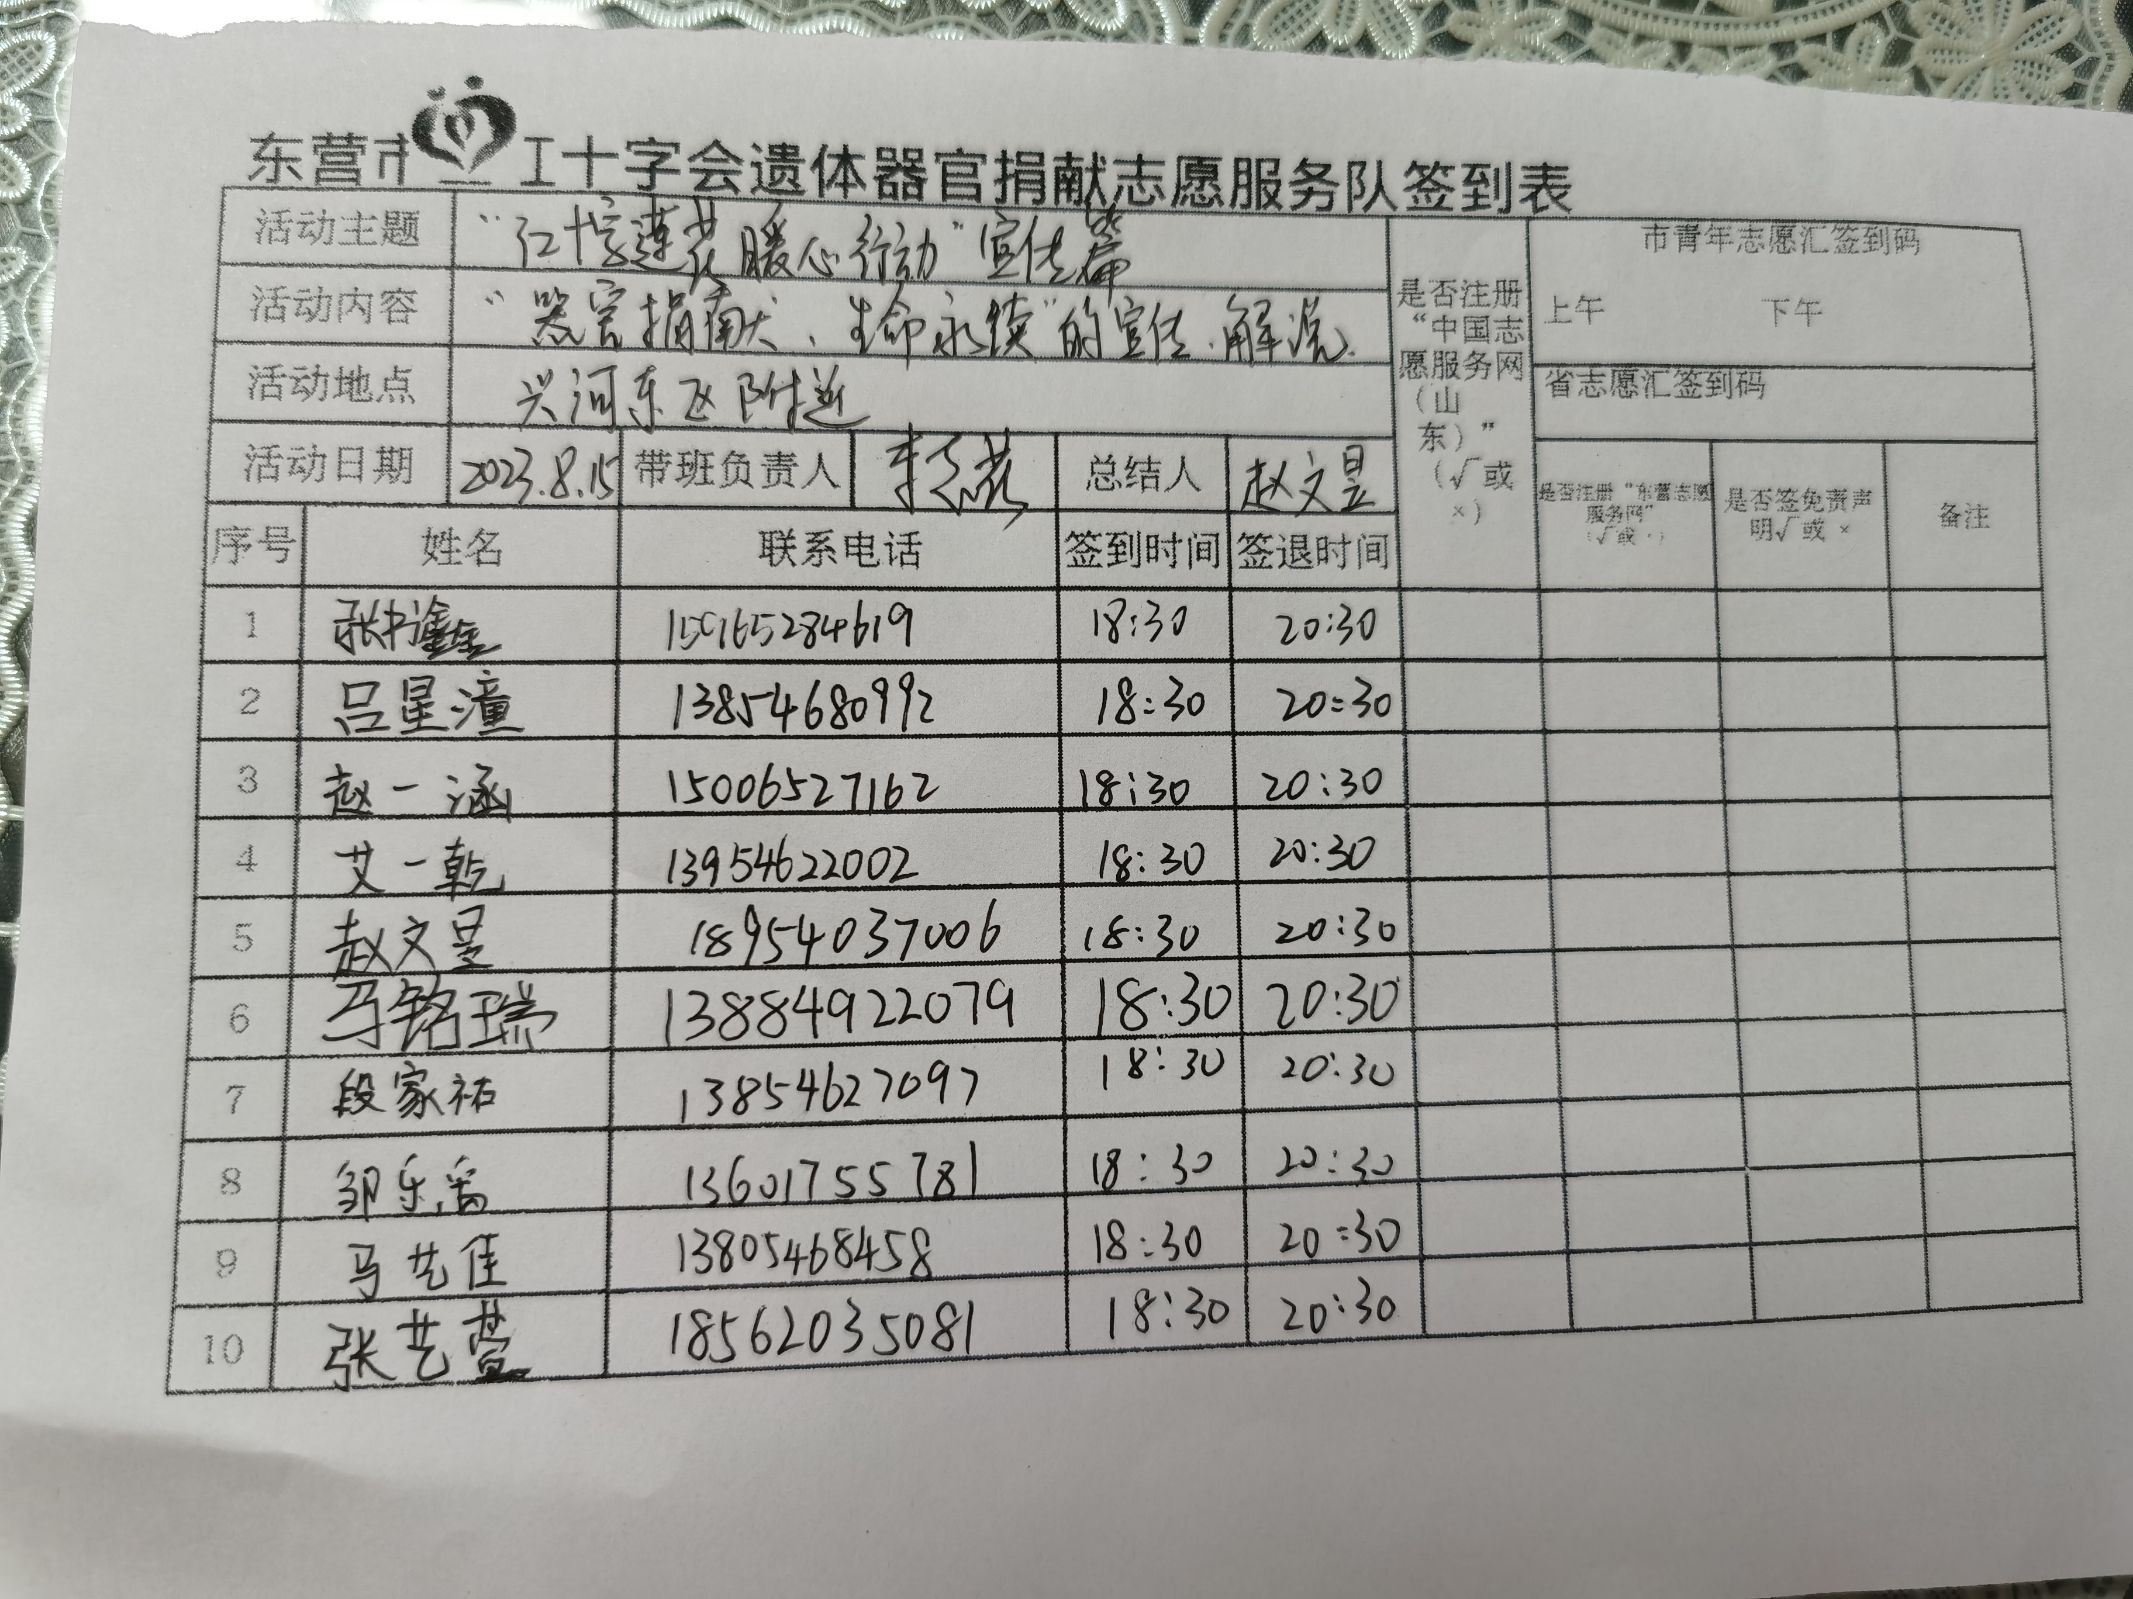 东营市红十字会遗体器官捐献志愿服务队签到表
活动主题 “红十字莲花暖心行动”宣传篇
活动内容 “器官捐献、生命永续”的宣传、解说.
活动地点 兴河东区附近
活动日期 2023.8.15 带班负责人 李 燕 总结人 赵文昱
是否注册“中国志愿服务网（山东）”（√或×）
市青年志愿汇签到码
上午 下午
省志愿汇签到码
是否注册“东营志愿服务网”（√或×） 是否签免责声明√或× 备注
序号 姓名 联系电话 签到时间 签退时间
1 张书鑫 15965284619 18:30 20:30
2 吕星潼 13854680992 18:30 20:30
3 赵一涵 15006527162 18:30 20:30
4 艾一乾 13954622002 18:30 20:30
5 赵文昱 18954037006 18:30 20:30
6 马铭瑞 13884922079 18:30 20:30
7 段家祐 13854627097 18:30 20:30
8 邹乐 13601755781 18:30 20:30
9 马艺佳 13805468458 18:30 20:30
10 张艺萱 18562035081 18:30 20:30